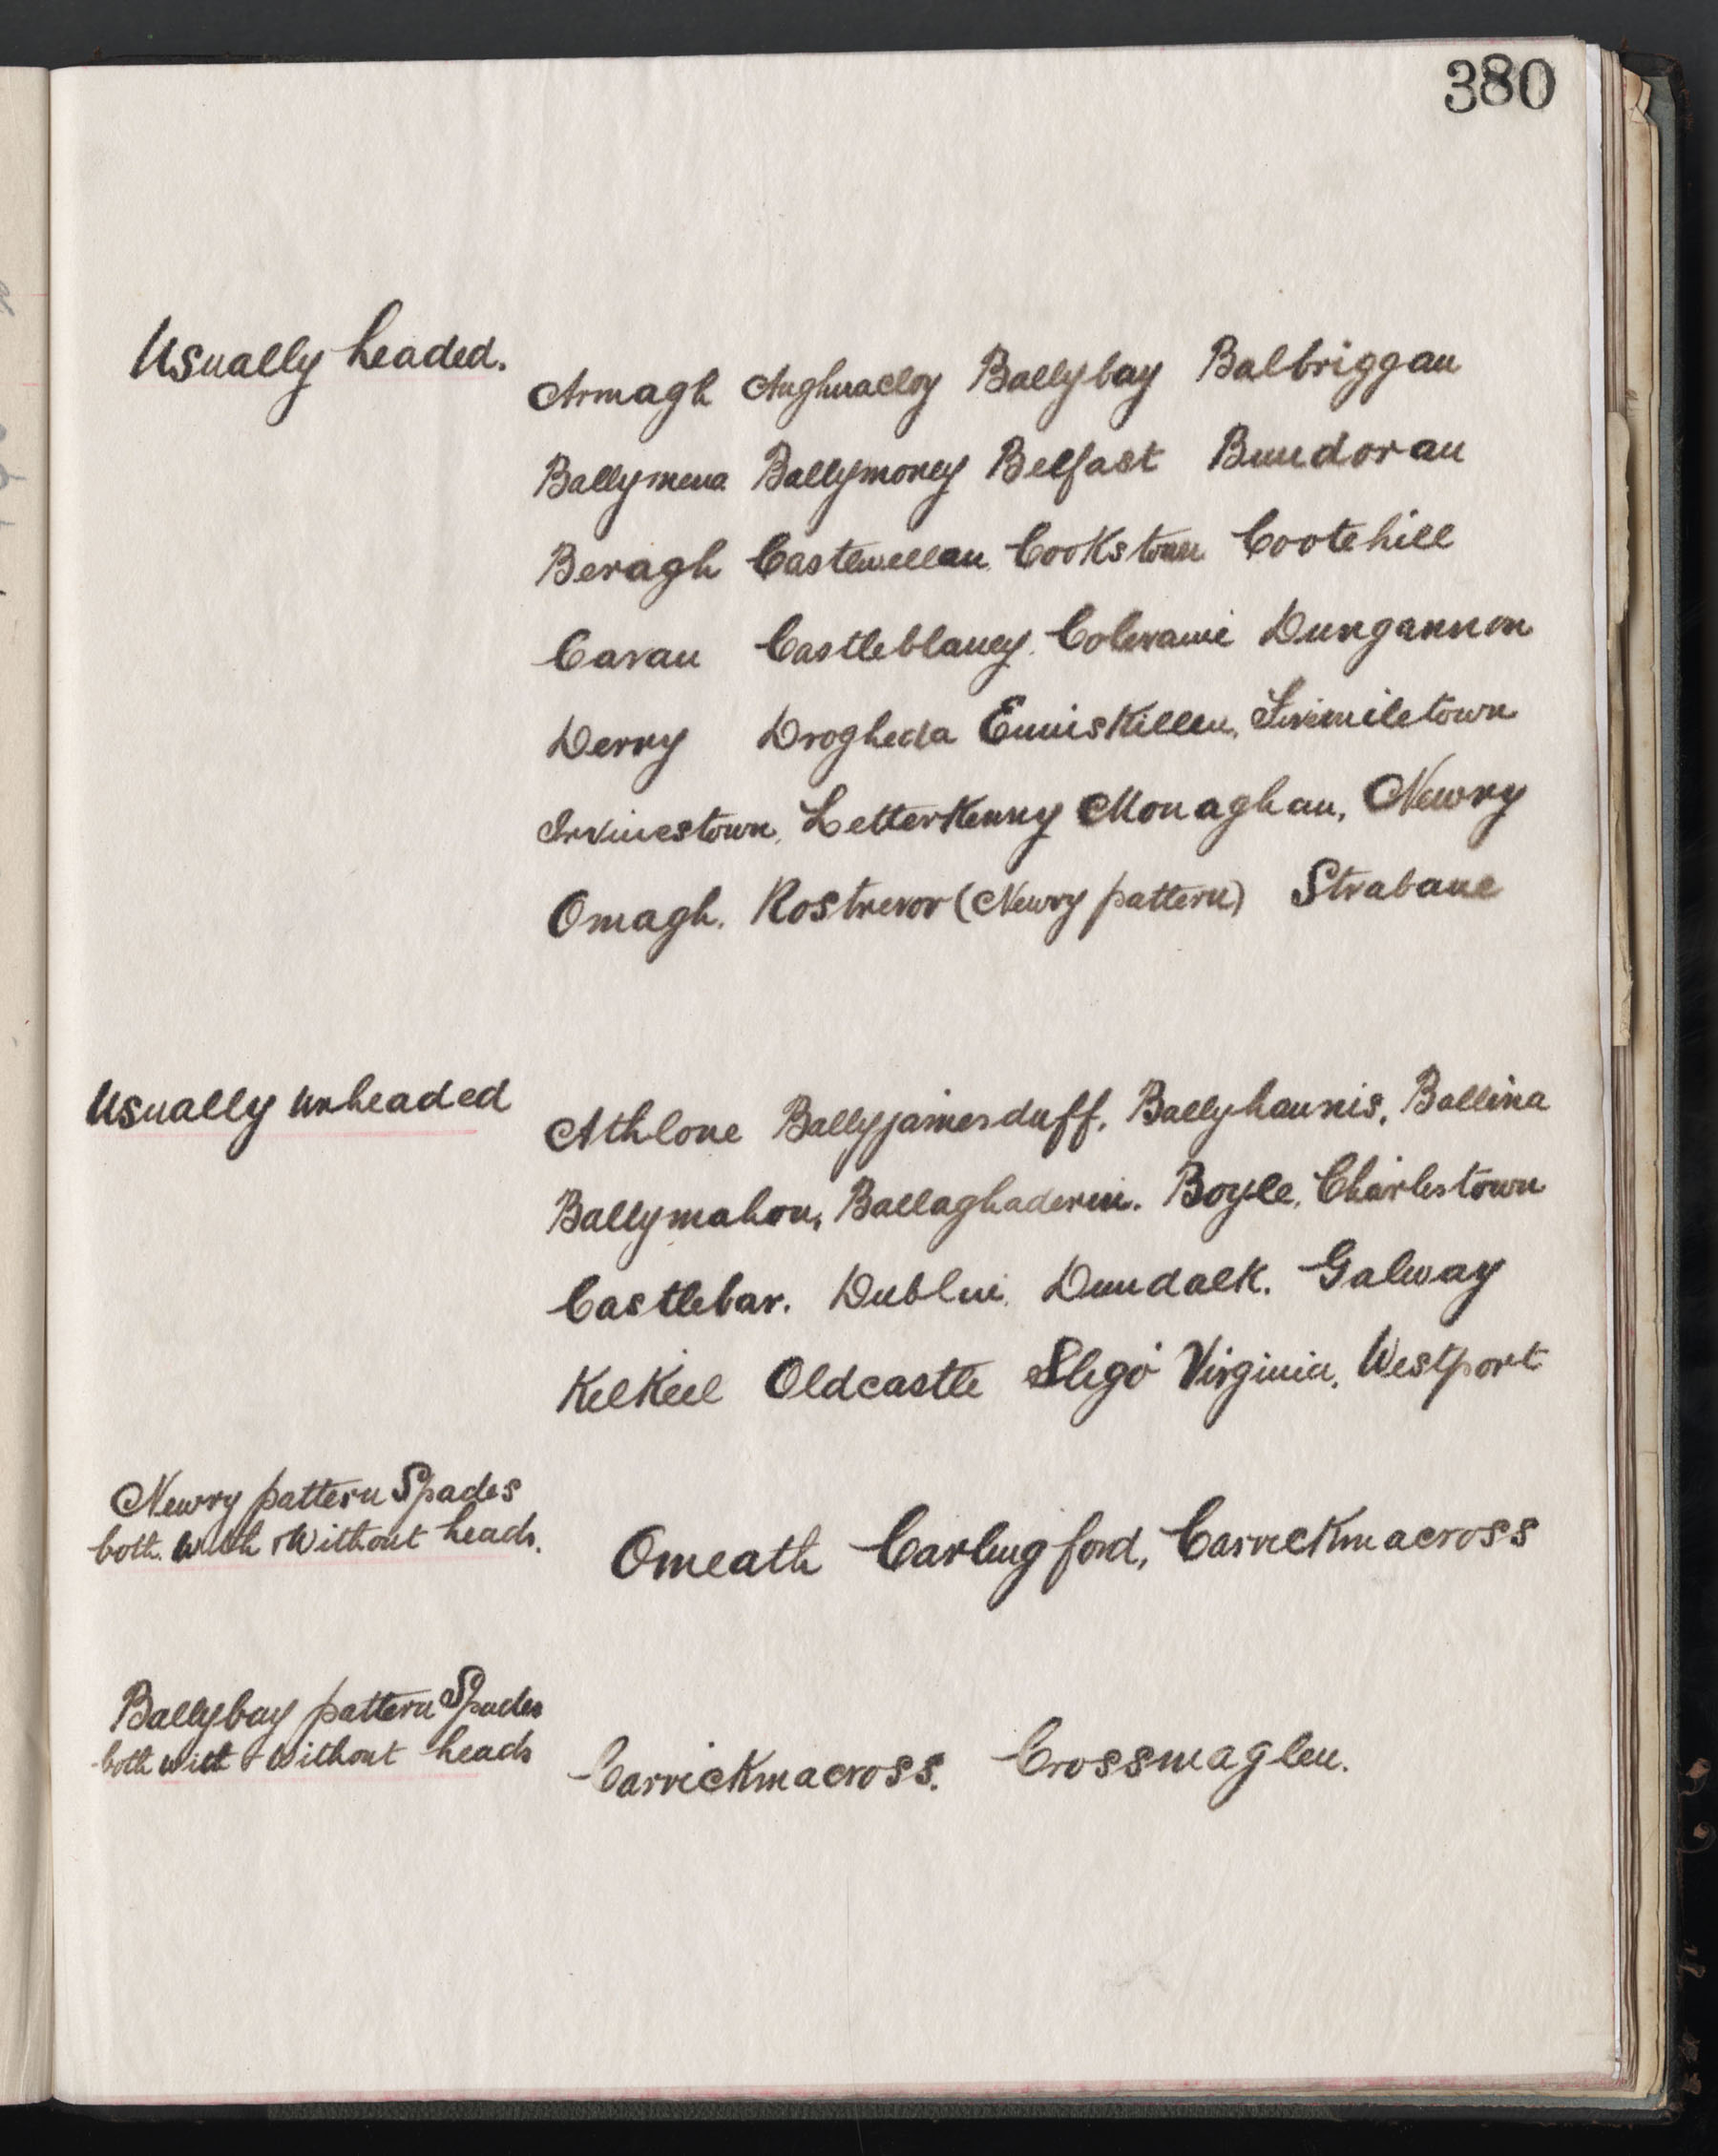 380
Usually headed.
Armagh Aughnacloy Ballybay Balbriggan
Ballymena Ballymoney Belfast Bundoran
Beragh Castlewellan, Cookstown Cootehill
Cavan Castleblaney. Coleraine Dungannon
Derry Drogheda Enniskillen, Fivemiletown
Irvinestown, Letterkenny Monaghan, Newry
Omagh. Rostrevor (Newry pattern) Strabane
Usually unheaded
Athlone Ballyjamesduff, Ballyhaunis, Ballina
Ballymahon, Ballaghaderin. Boyle, Charlestown
Castlebar. Dublin, Dundalk. Galway
Kilkeel Oldcastle Sligo Virginia, Westport
Newry pattern Spades
both with & Without heads.
Omeath Carlingford, Carrickmacross
Ballybay pattern Spades
both with & Without heads
Carrickmacross. Crossmaglen.